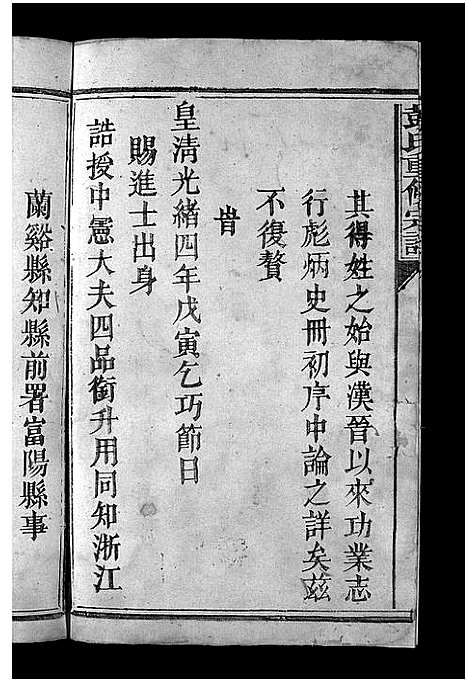 其得姓之始與漢晉以來功業志
行彪炳史冊初序中論之詳矣茲
不復贅
旹
皇清光緒四年戊寅乞巧節日
賜進士出身
誥授中憲大夫四品銜升用同知浙江
蘭谿縣知縣前署富陽縣事